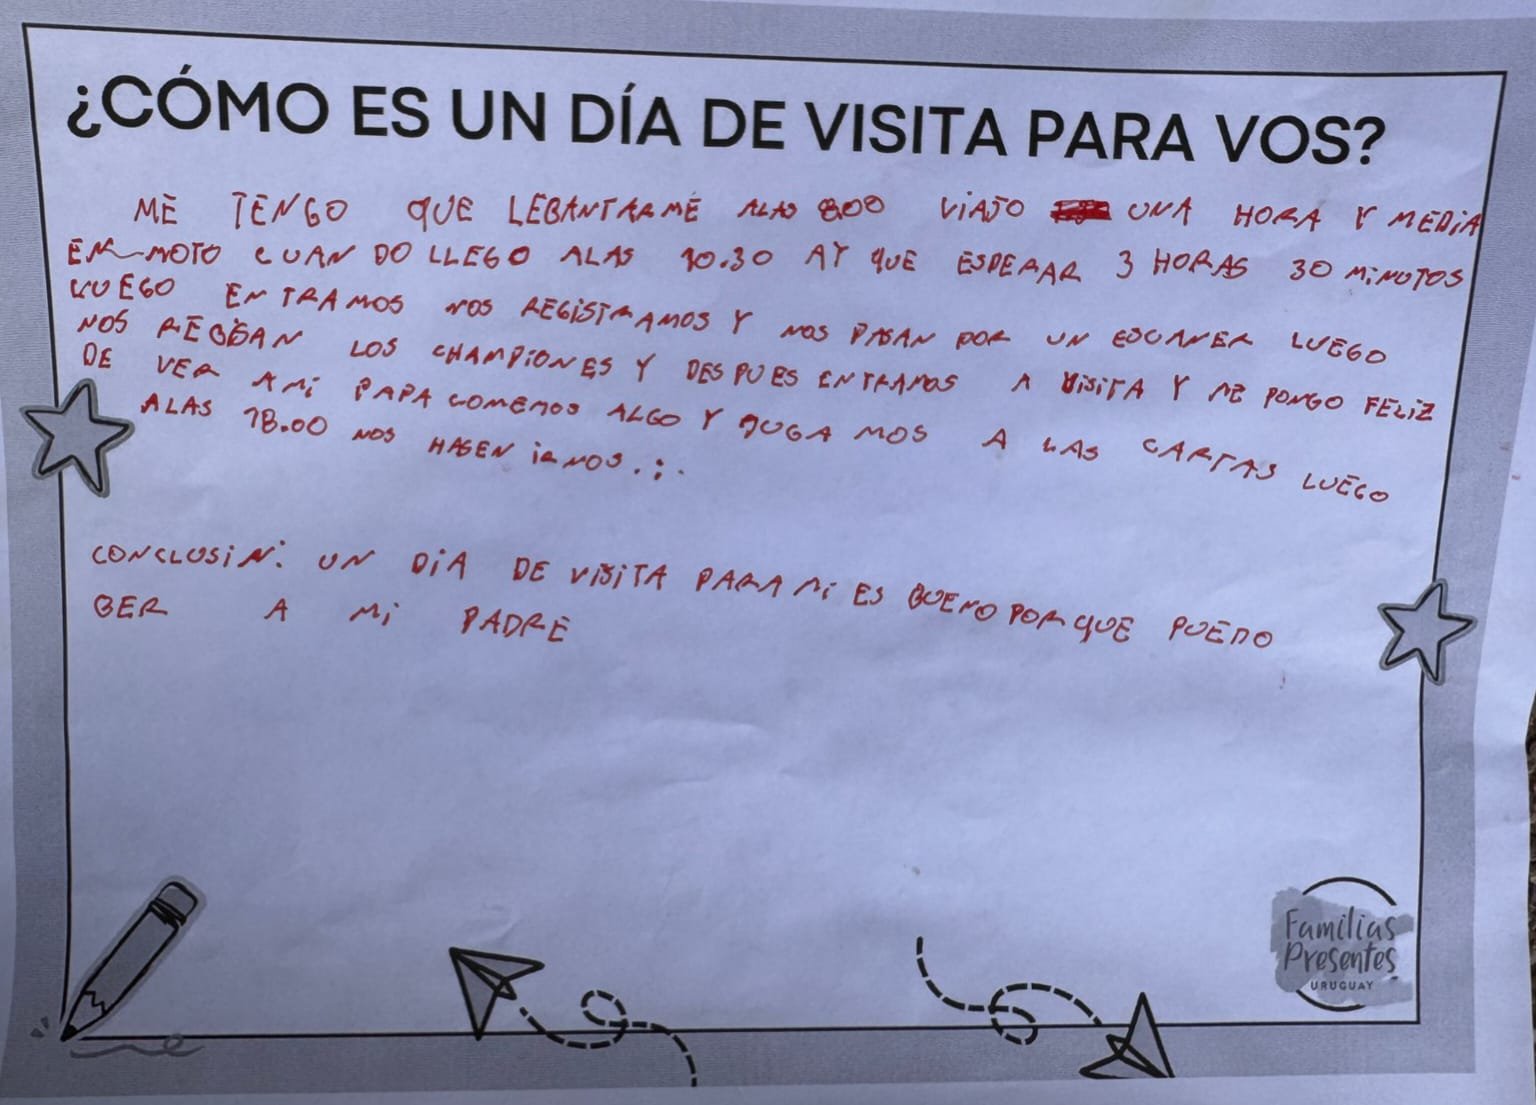 ¿CÓMO ES UN DÍA DE VISITA PARA VOS?
ME TENGO QUE LEBANTARME ALAS 8.00 VIAJO UNA HORA Y MEDIA
EN MOTO CUAN DO LLEGO ALAS 10.30 AY QUE ESPERAR 3 HORAS 30 MINUTOS
LUEGO EN TRAMOS NOS REGISTRAMOS Y NOS PASAN POR UN ESCANER LUEGO
NOS REBISAN LOS CHAMPIONES Y DES PUES ENTRAMOS A VISITA Y ME PONGO FELIZ
DE VER AMI PAPA COMEMOS ALGO Y JUGA MOS A LAS CARTAS LUEGO
ALAS 18.00 NOS HASEN IRNOS.:.
CONCLUSIN: UN DIA DE VISITA PARA MI ES BUENO POR QUE PUEDO
BER A MI PADRE
Familias
Presentes
URUGUAY